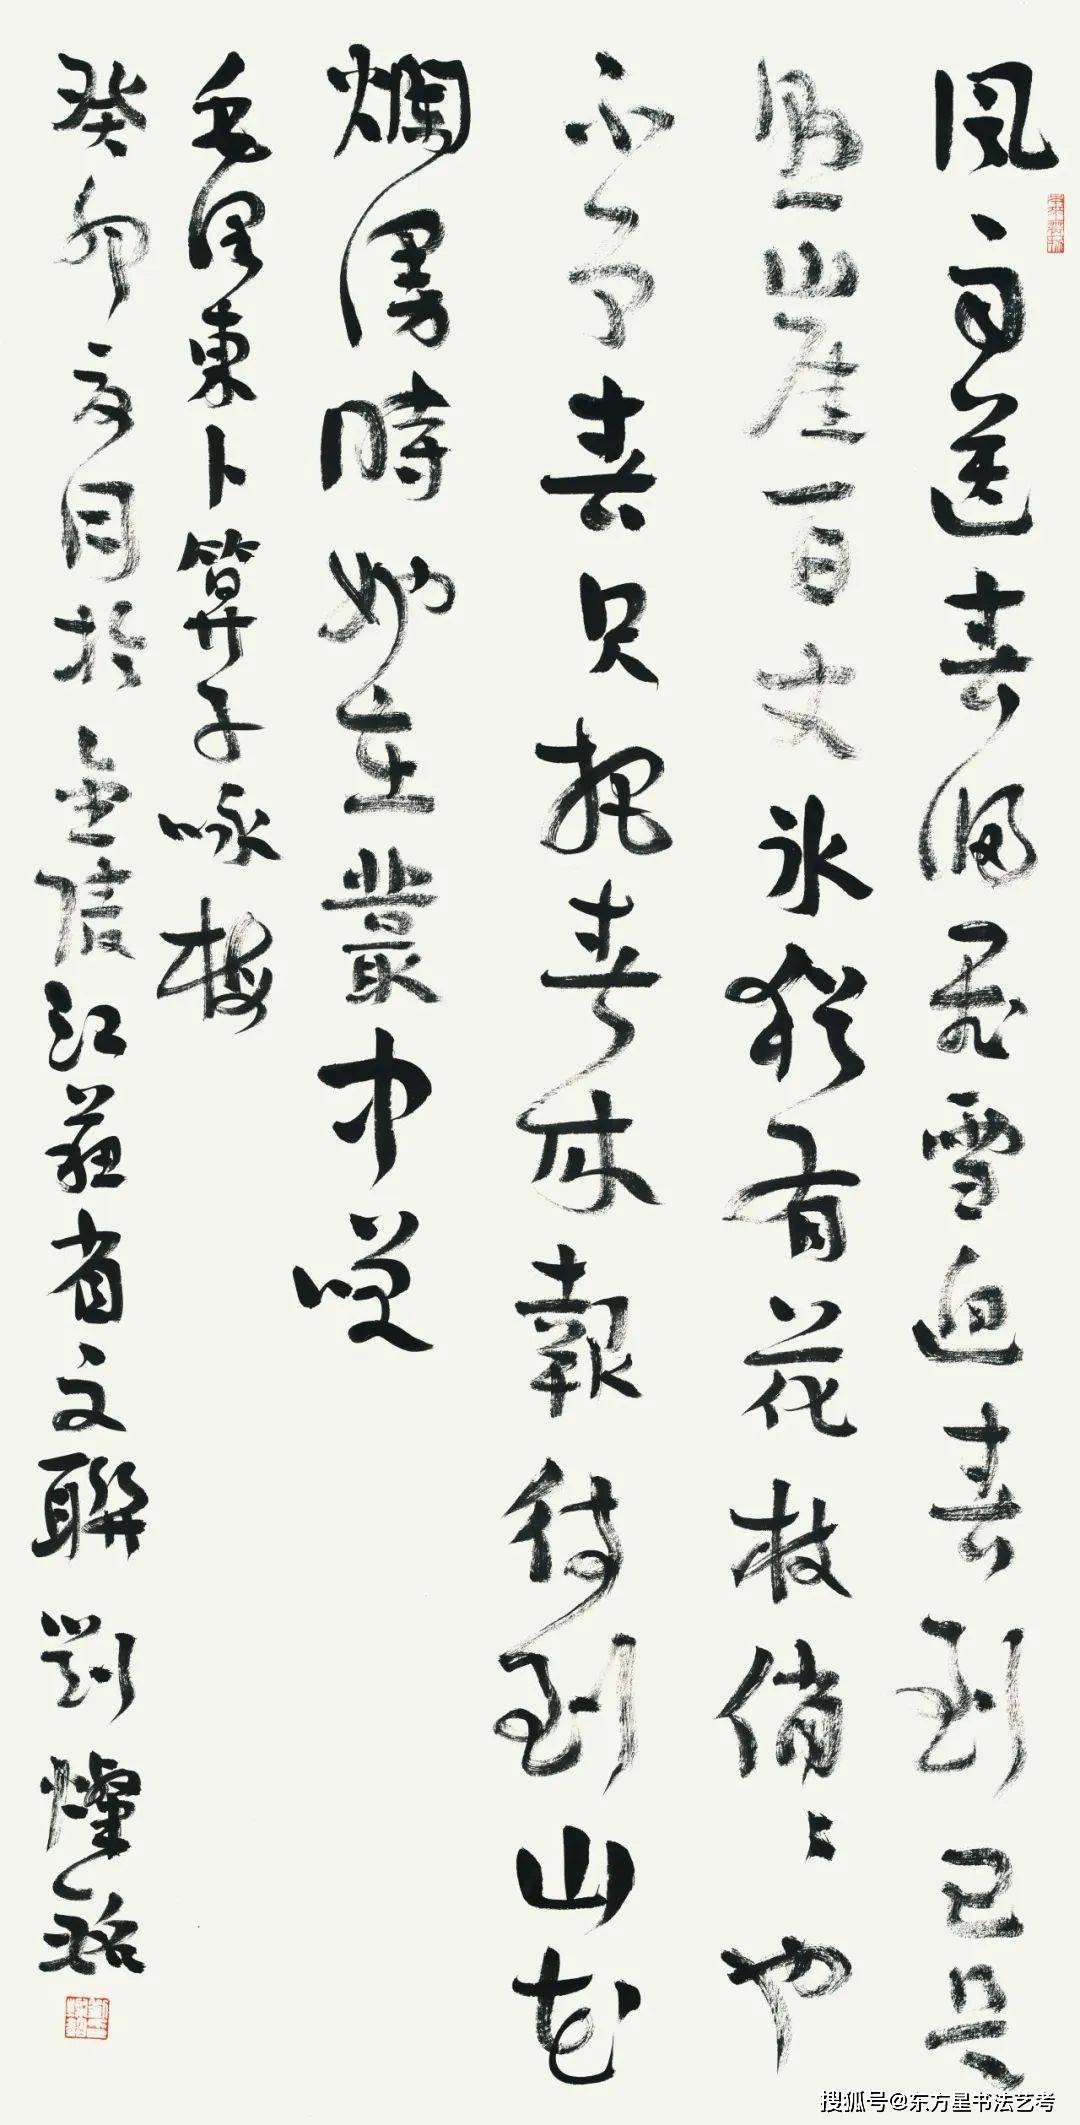 風雨送春歸飛雪迎春到已是
懸崖百丈冰猶有花枝俏〻也
不争春只把春來報待到山花
爛漫時她在叢中咲
毛澤東卜算子咏梅
癸卯夏月於金陵江蘇省文聯劉燦銘
搜狐号@东方星书法艺考